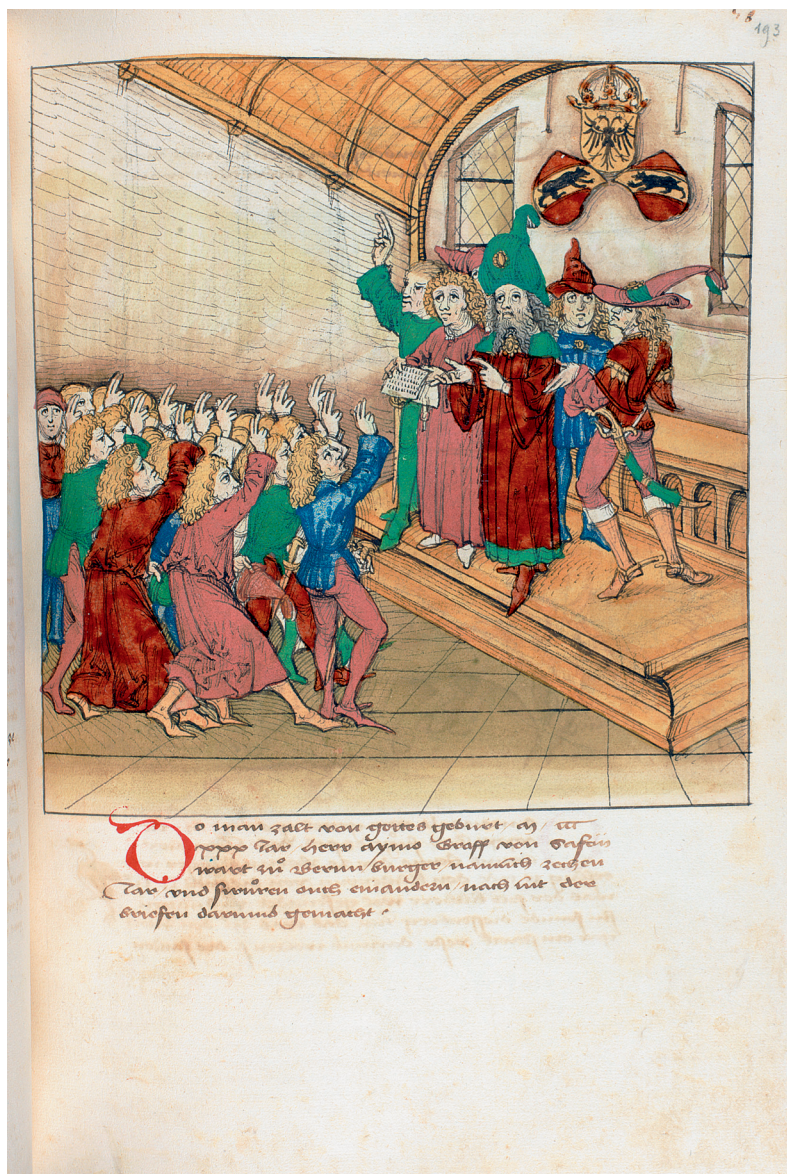 193
Do man zalt von gottes geburt M ccc
xxx Jar herr aymo Graff von Safoy
wart zů Bernn burger namlich zechen
Jar vnd swůren ouch einandern nach lut der
briefen darumb gemacht .